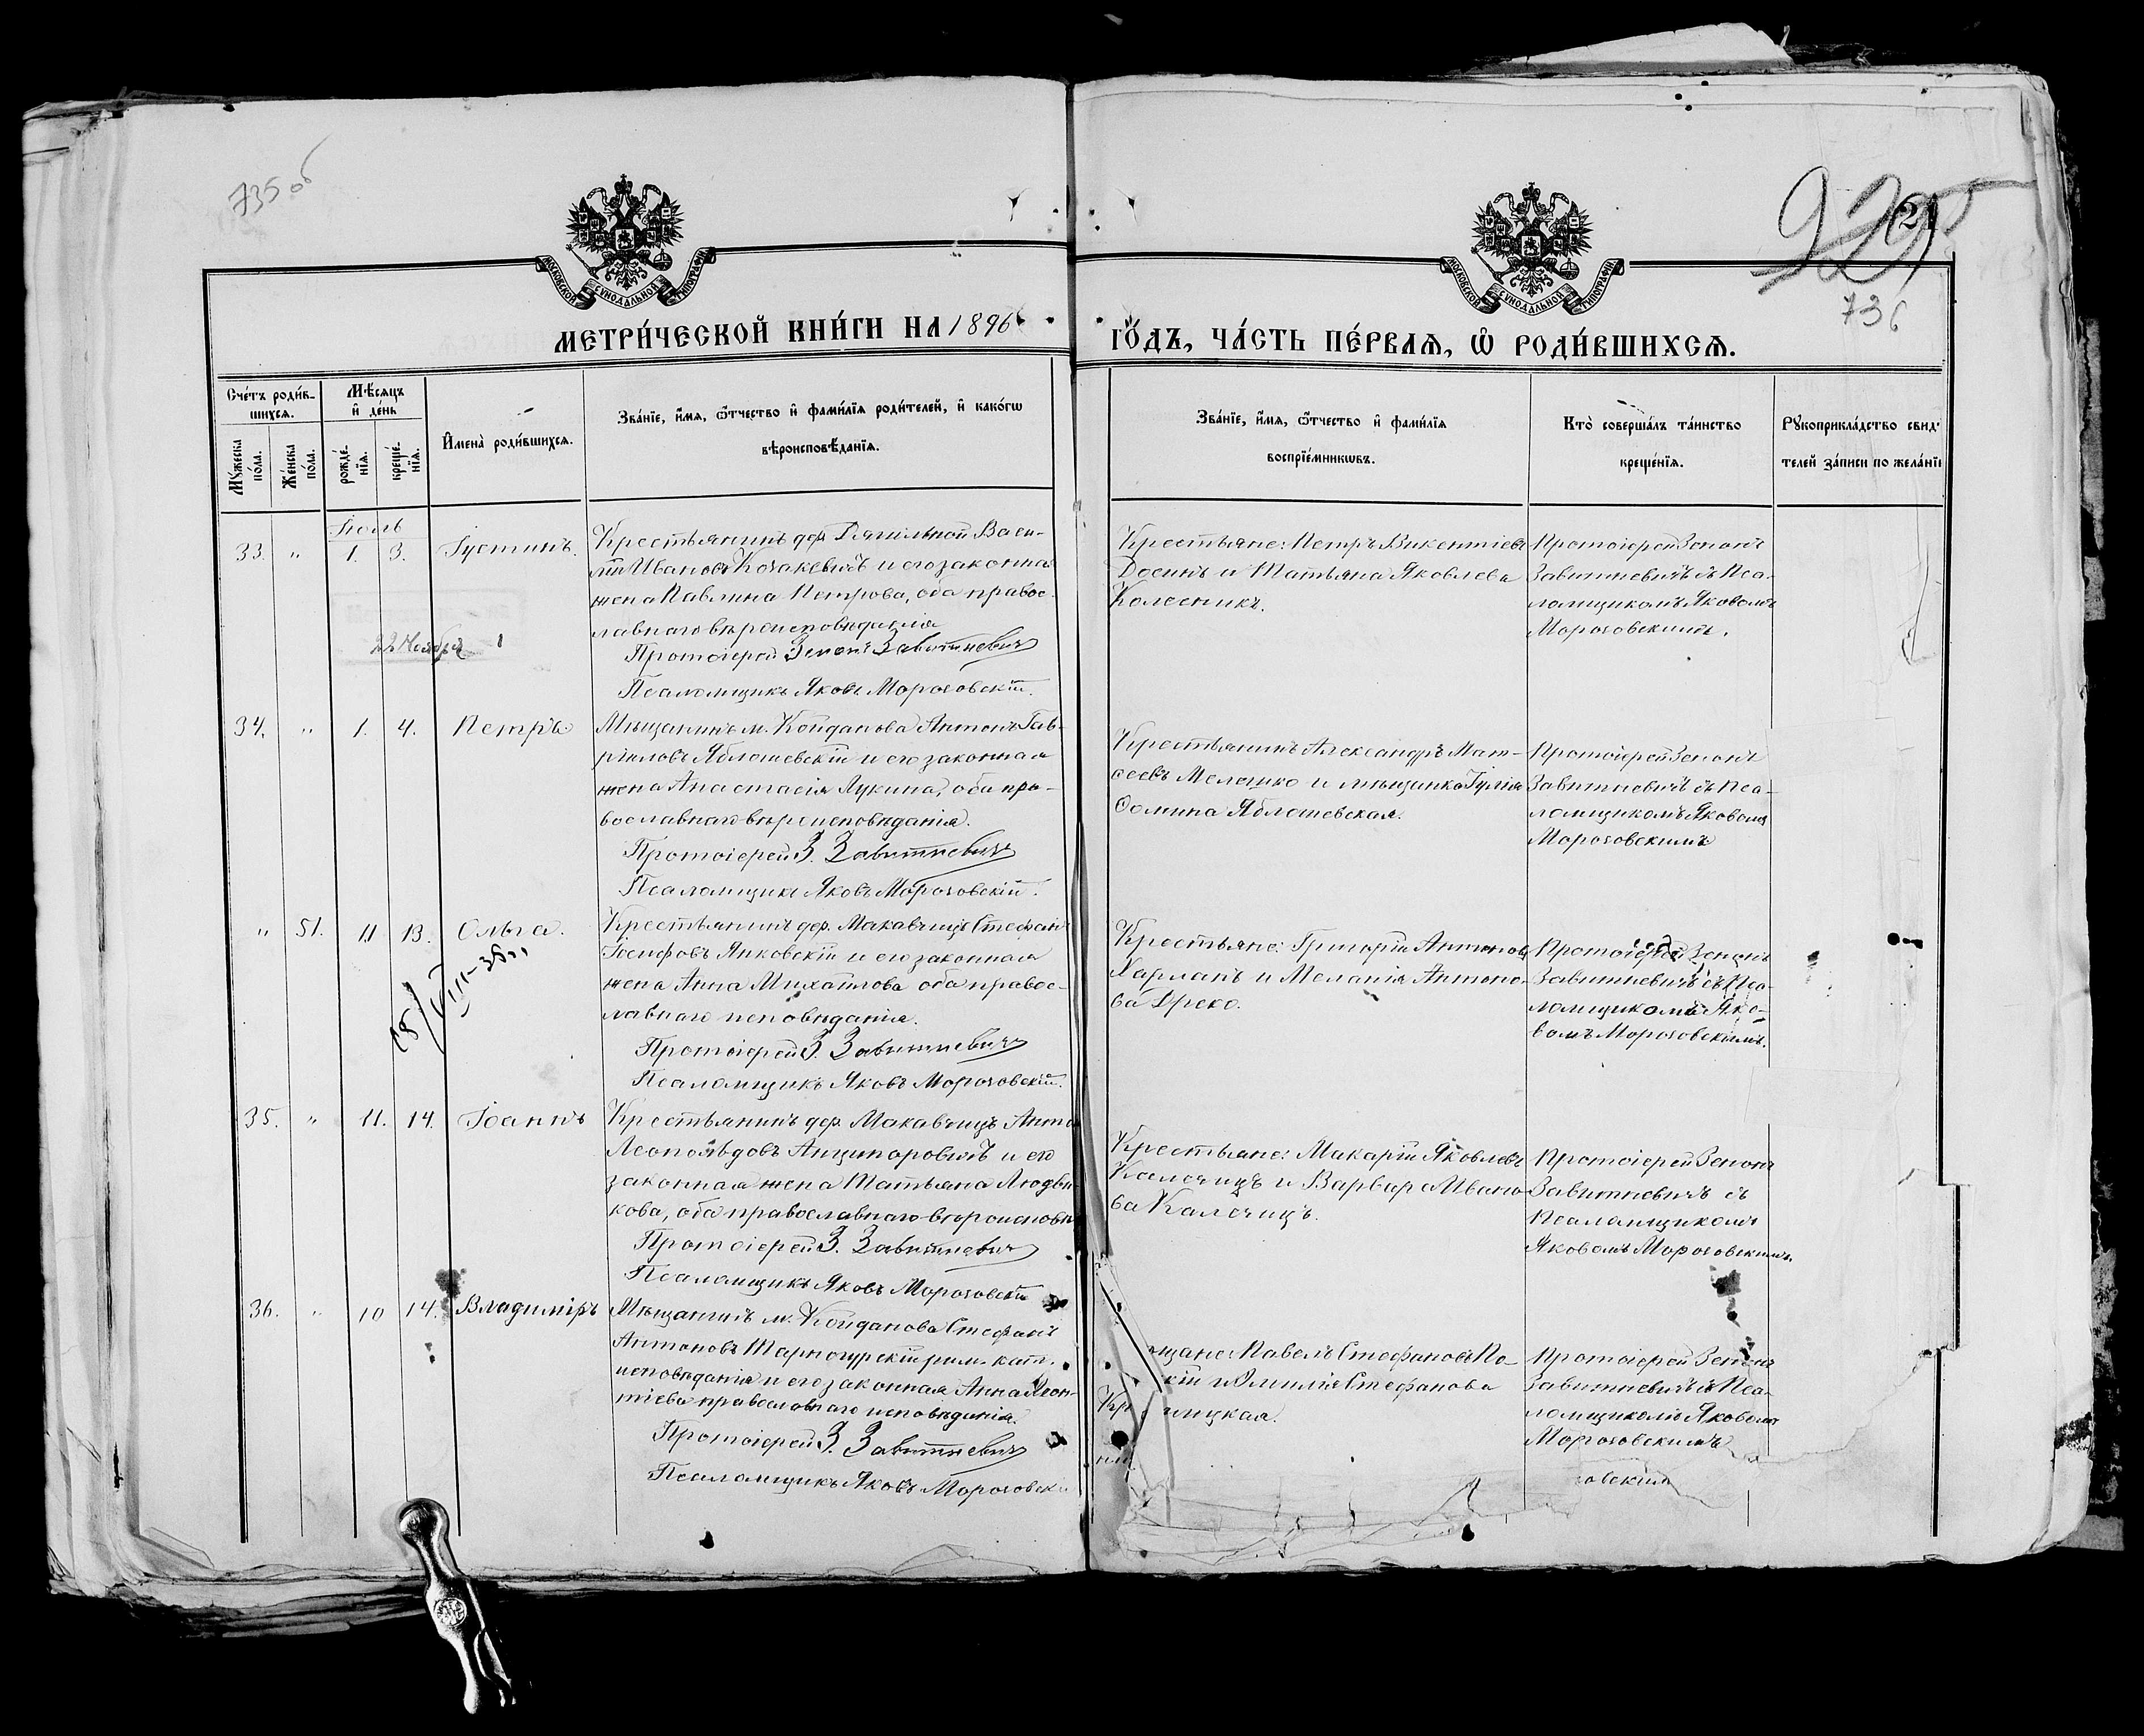 735 об
925
21
736
МОСКОВСКОЙ СѴНОДАЛЬНОЙ ТИПОГРАФІИ
МОСКОВСКОЙ СѴНОДАЛЬНОЙ ТИПОГРАФІИ
МЕТРИ́ЧЕСКОЙ КНИ́ГИ НА 1896
ГО́ДЪ, ЧА́СТЬ ПЕ́РВАЯ, Ѡ҆ РОДИ́ВШИХСЯ.
Сче́тъ роди́в-
шихся.
Мѣ́сяцъ
и҆ де́нь
Му́жеска
по́ла.
Же́нска
по́ла.
рожде́-
нія.
креще́-
нія.
И҆мена̀ роди́вшихся.
Зва́ніе, и҆́мя, ѻ҆́тчество и҆ фами́лія роди́телей, и҆ како́гѡ
вѣроисповѣ́данія.
Зва́ніе, и҆́мя, ѻ҆́тчество и҆ фами́лія
воспріе́мникѡвъ.
Кто̀ соверша́лъ та́инство
креще́нія.
Рукоприкла́дство свид-
телей за́писи по жела́ні
Іюль
33. " 1. 3. Іустинъ.
Крестьянинъ дер. Васи-
лій Ивановъ Козакевичъ и его законная
жена Павлина Петрова, оба правос-
лавнаго вѣроисповѣданія
Протоіерей Зенонъ Завитневичъ
Псаломщикъ Яковъ Морозовскій.
22 Ноября
Крестьяне: Петръ Викентіевъ
Досинъ и Татьяна Яковлева
Колесникъ.
Протоіерей Зенонъ
Завитневичъ съ Пса-
ломщикомъ Яковомъ
Морозовскимъ.
34. " 1. 4. Петръ
Мѣщанинъ м. Койданова Антонъ Гав-
ріиловъ Яблошевскій и его законная
жена Анастасія Лукина, оба пра-
вославнаго вѣроисповѣданія.
Протоіерей З. Завитневичъ
Псаломщикъ Яковъ Морозовскій.
Крестьянинъ Александръ Мат-
ѳеевъ Мелешко и мѣщанка Іулія
Ѳомина Яблошевская.
Протоіерей Зенонъ
Завитневичъ съ Пса-
ломщикомъ Яковомъ
Морозовскимъ
" 51. 11 13. Ольга.
Крестьянинъ дер. Макавчицъ Стефанъ
Іосифовъ Янковскій и его законная
жена Анна Михайлова оба правос-
лавнаго исповѣданія.
Протоіерей З. Завитневичъ
Псаломщикъ Яковъ Морозовскій.
Крестьяне: Григорій Антоновъ
Харланъ и Меланія Антоно-
ва Дреко.
Протоіерей Зенонъ
Завитневичъ съ Пса-
ломщикомъ Яко-
вомъ Морозовскимъ.
35. " 11. 14. Іоаннъ
Крестьянинъ дер. Макавчицъ Анто
Леопольдовъ Анципоровичъ и его
законная жена Татьяна Людви-
кова, оба православнаго вѣроисповѣ
Протоіерей З. Завитневичъ
Псаломщикъ Яковъ Морозовскій
Крестьяне: Макарій Яковлевъ
Калечицъ и Варвара Ивано-
ва Калечицъ.
Протоіерей Зенонъ
Завитневичъ съ
Псаломщикомъ
Яковомъ Морозовскимъ.
36. " 10 14. Владиміръ
Мѣщанинъ м. Койданова Стефанъ
Антоновъ Тарногурскій рим. кат.
исповѣданія и его законная Анна Леон-
тіева православнаго исповѣданія.
Протоіерей З. Завитневичъ
Псаломщикъ Яковъ Морозовск
щане: Павелъ Стефановъ По-
кій и Эмилія Стефанова
Протоіерей Зенонъ
Завитневичъ съ Пса-
ломщикомъ Яковомъ
Морозовскимъ
овскій